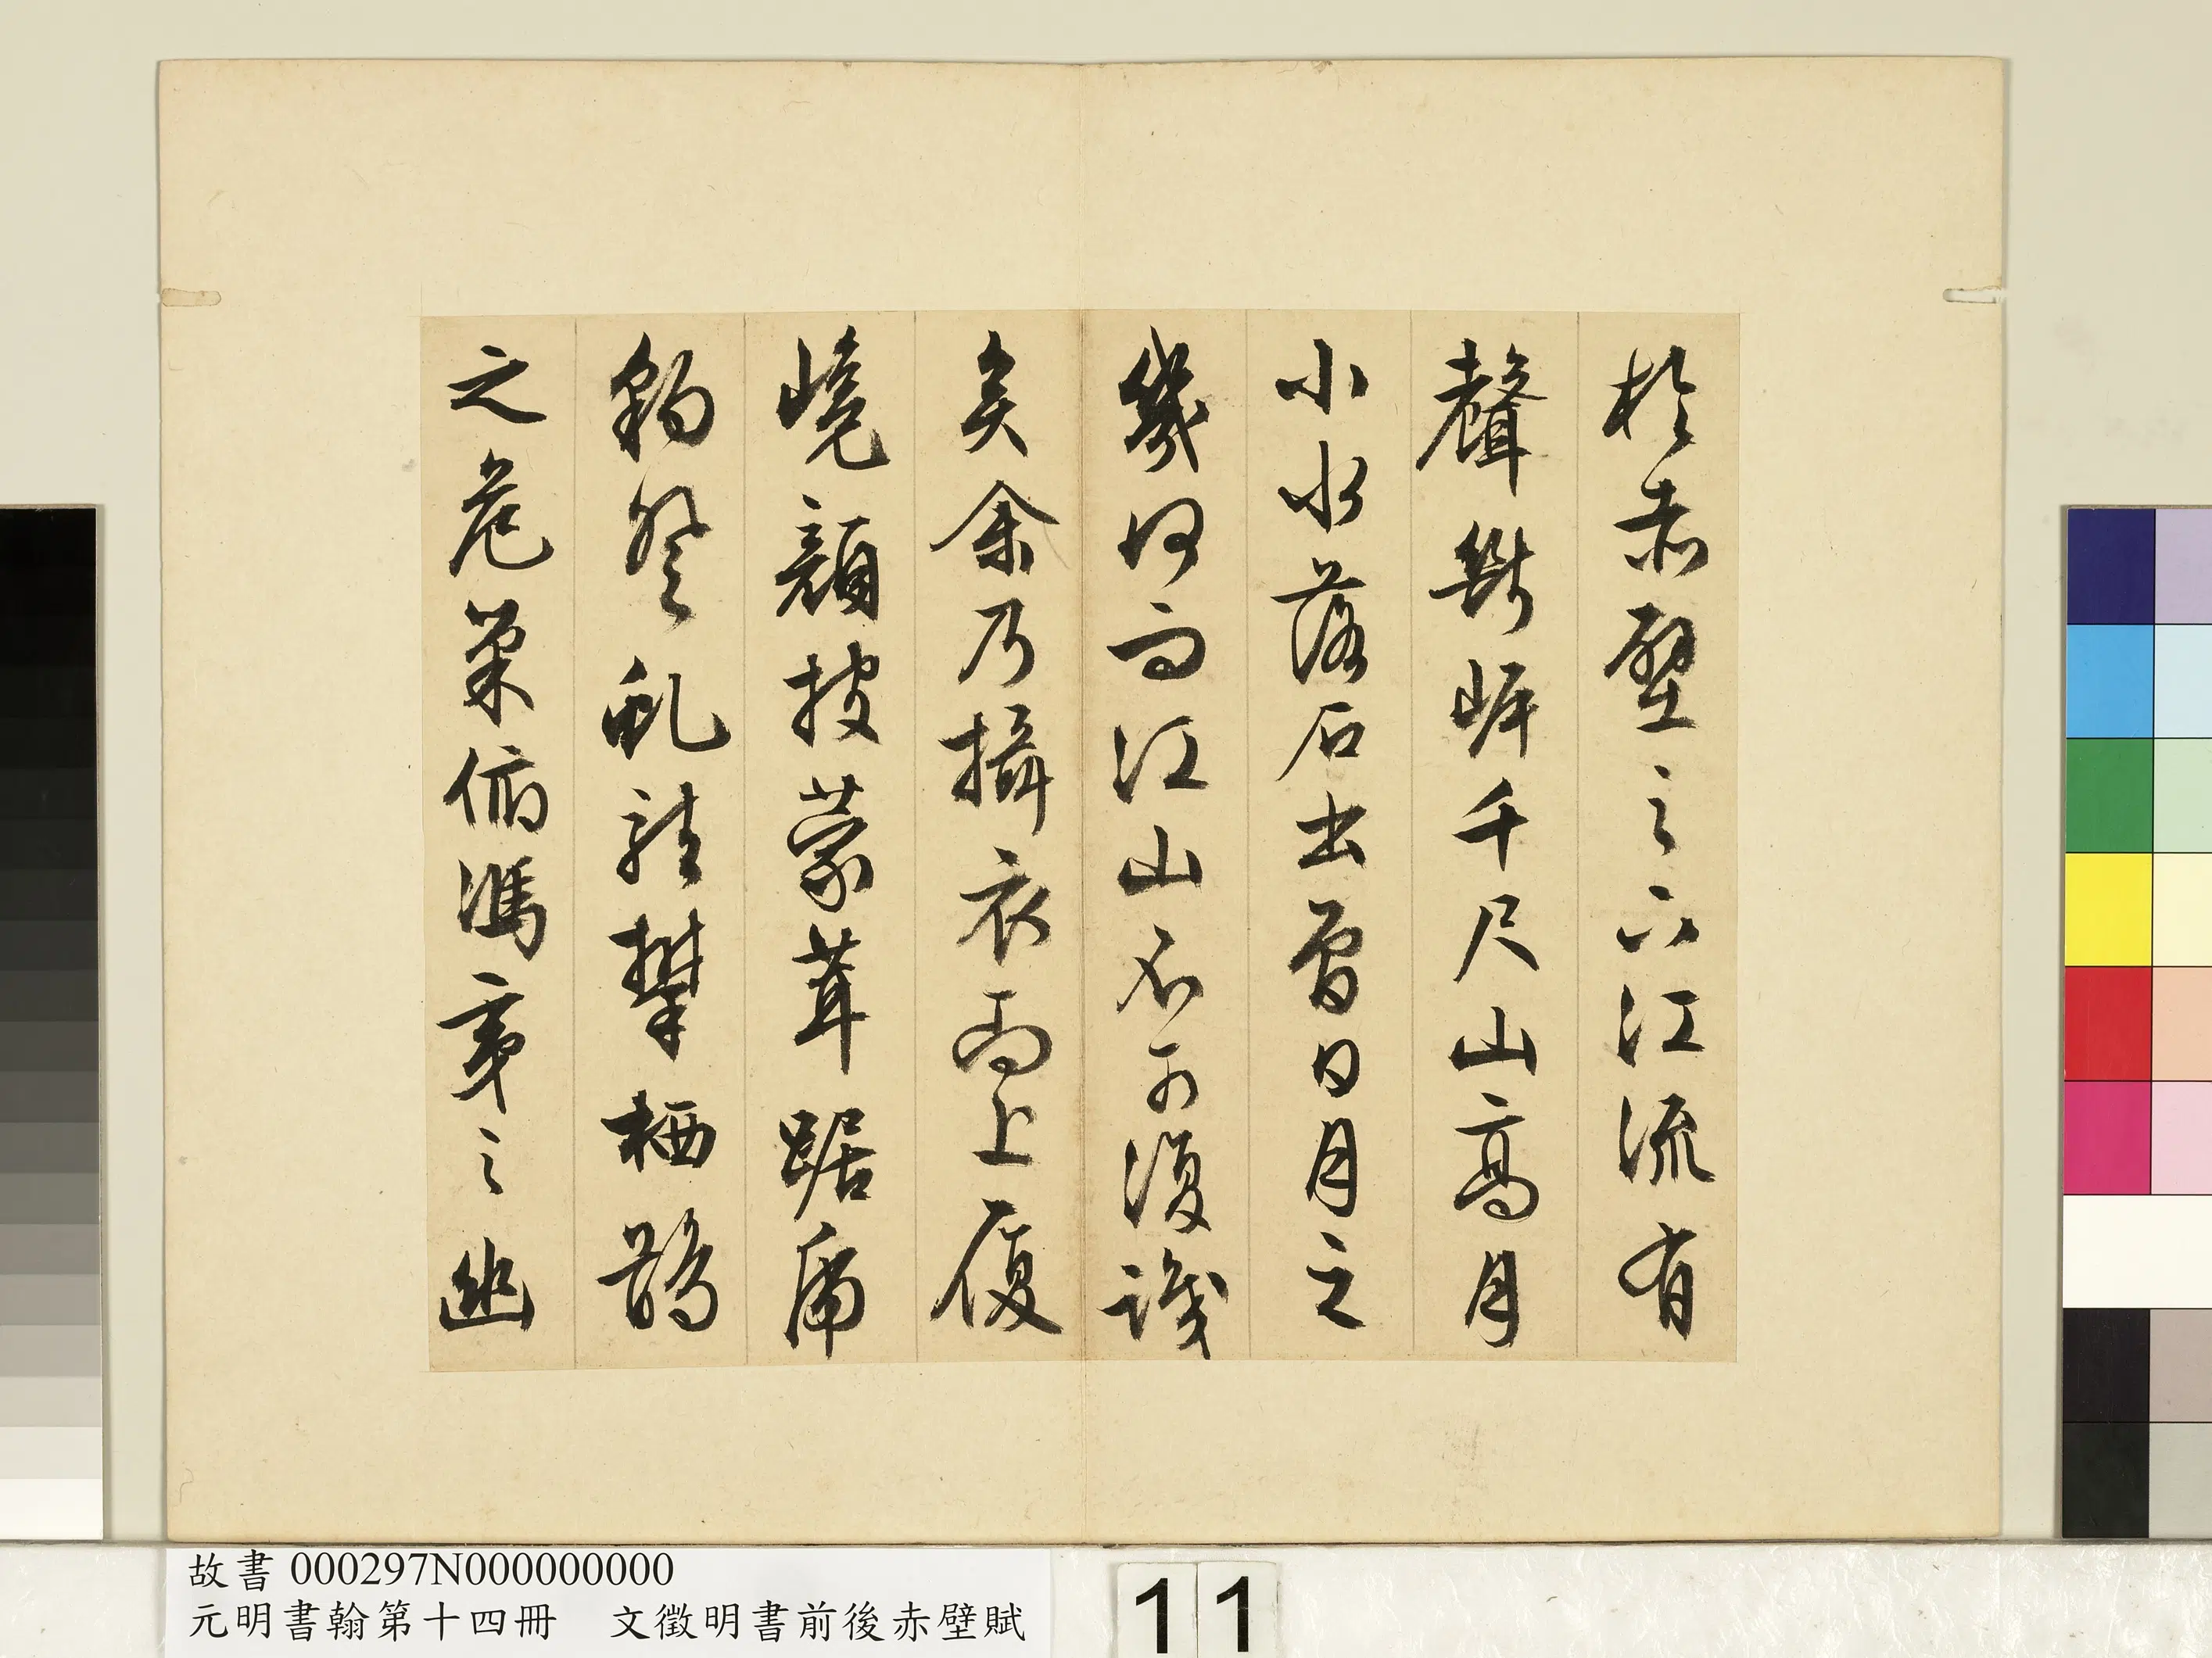 於赤壁之下江流有
聲斷岸千尺山高月
小水落石出曾日月之
幾何而江山不可復識
矣余乃攝衣而上履
巉顏披蒙茸踞虎
豹登虬龍攀栖鶻
之危巢俯馮夷之幽
故書 000297N000000000
元明書翰第十四冊 文徵明書前後赤壁賦
11